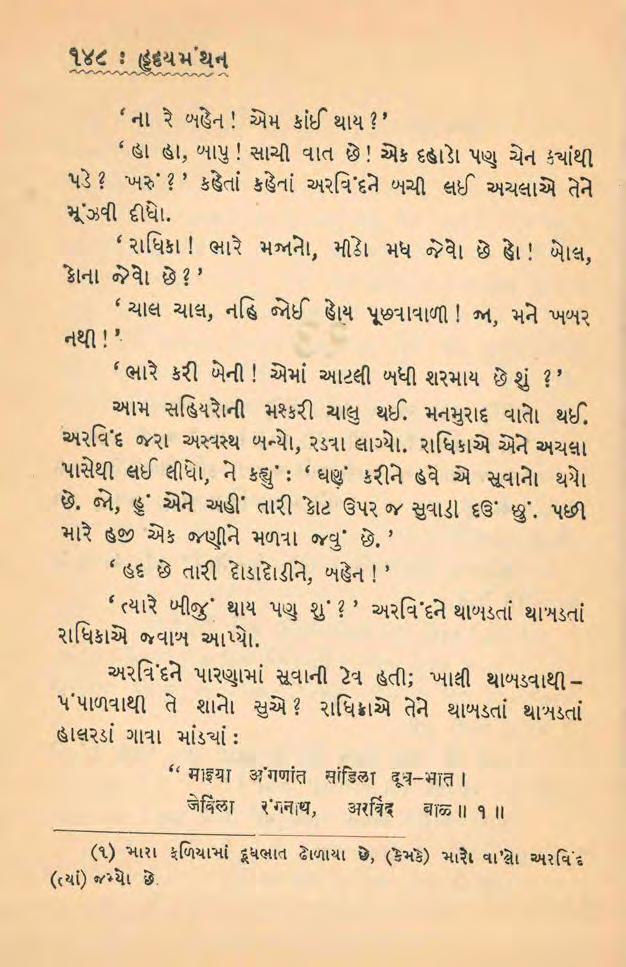 ૧૪૮ : હૃદયમંથન
‘ના રે બહેન! એમ કાંઈ થાય?’
‘હા હા, બાપુ! સાચી વાત છે! એક દહાડો પણ ચેન ક્યાંથી
પડે? ખરું?’ કહેતાં કહેતાં અરવિંદને બચી લઈ અચલાએ તેને
મૂંઝવી દીધો.
‘રાધિકા! ભારે મઝાનો, મીઠો મધ જેવો છે હો! બોલ,
કોના જેવો છે?’
‘ચાલ ચાલ, નહિ જોઈ હોય પૂછવાવાળી! જા, મને ખબર
નથી!’
‘ભારે કરી બેની! એમાં આટલી બધી શરમાય છે શું ?’
આમ સહિયરોની મશ્કરી ચાલુ થઈ. મનમુરાદ વાતો થઈ.
અરવિંદ જરા અસ્વસ્થ બન્યો, રડવા લાગ્યો. રાધિકાએ એને અચલા
પાસેથી લઈ લીધો, ને કહ્યું : ‘ઘણું કરીને હવે એ સૂવાનો થયો
છે. જો, હું એને અહીં તારી કોટ ઉપર જ સુવાડી દઉં છું. પછી
મારે હજી એક જણીને મળવા જવું છે.’
‘હદ છે તારી દોડાદોડીને, બહેન!’
‘ત્યારે બીજું થાય પણ શું?’ અરવિંદને થાબડતાં થાબડતાં
રાધિકાએ જવાબ આપ્યો.
અરવિંદને પારણામાં સૂવાની ટેવ હતી; ખાલી થાબડવાથી–
પંપાળવાથી તે શાનો સુએ? રાધિકાએ તેને થાબડતાં થાબડતાં
હાલરડાં ગાવા માંડ્યાં :
“ माझ्या अंगणांत सांडिला दूध–भात ।
जेविंला रंगनाथ, अरविंद बाळ ॥ १ ॥
(૧) મારા ફળિયામાં દૂધભાત ઢોળાયા છે, (કેમકે) મારો વા’લો અરવિંદ
(ત્યાં) જમ્યો છે.